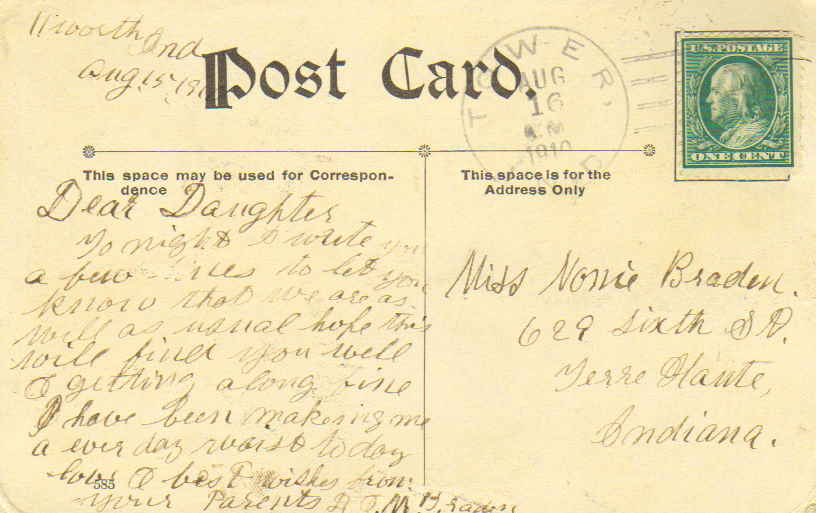 Worth Ind
Aug 15 191
Post Card.
TOWER,
AUG
16
A.M.
1910
U.S. POSTAGE
ONE CENT
This space may be used for Correspon-
dence
This space is for the
Address Only
Dear Daughter
To night I write you
a few lines to let you
know that we are as
well as usual hope this
will find you well
& getting along fine
I have been makeing me
a ever day waist to day
love & best wishes from
your Parents
Braden
585
Miss Nonie Braden.
629 Sixth St.
Terre Haute,
Indiana.